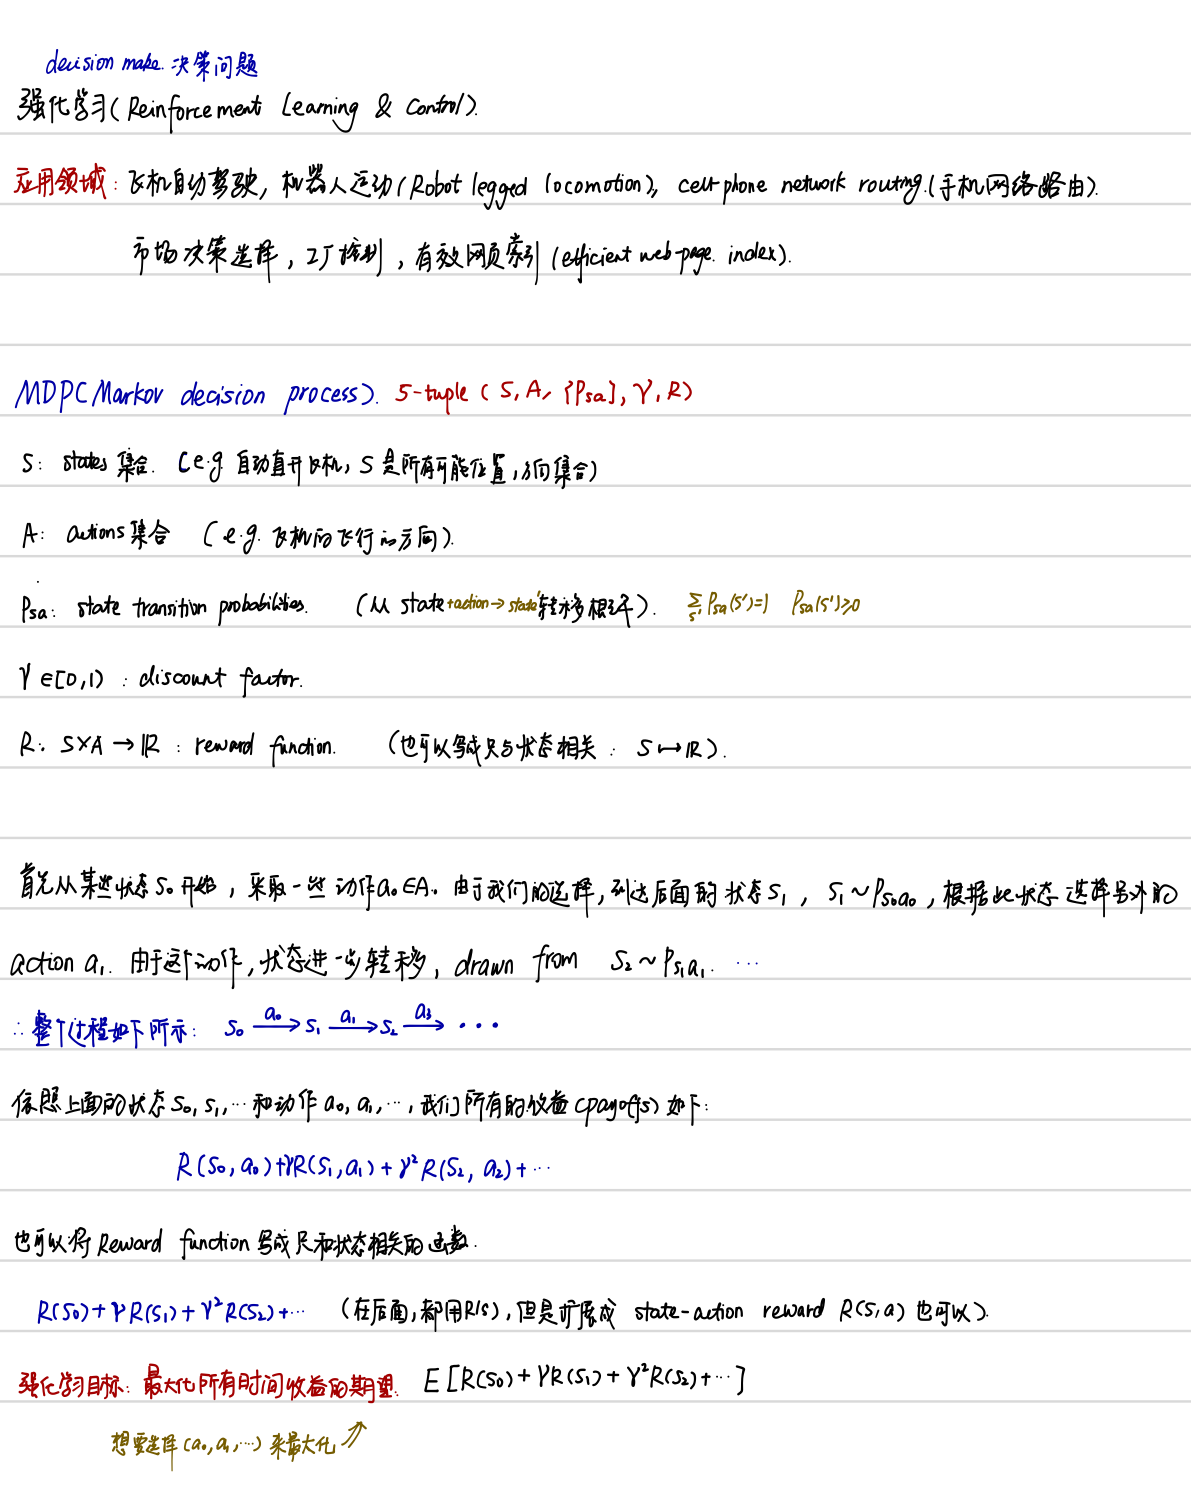 decision make. 决策问题
强化学习 (Reinforcement Learning & Control).
应用领域: 飞机自动驾驶, 机器人运动 (Robot legged locomotion), cell-phone network routing. (手机网络路由).
市场决策选择, 工厂控制, 有效网页索引 (efficient web-page. index).
MDP (Markov decision process). 5-tuple (S, A, {Psa}, γ, R)
S: states 集合. (e.g 自动直升飞机, S 是所有可能位置, 方向集合)
A: actions 集合 (e.g. 飞机的飞行的方向).
Psa: state transition probabilities. (从 state +action → state' 转移概率). Σs' Psa(s')=1 Psa(s')≥0
γ ∈[0,1) : discount factor.
R: S×A → ℝ : reward function. (也可以写成只与状态相关 : S ↦ ℝ).
首先从某些状态 S₀ 开始, 采取一些动作 a₀∈A. 由于我们的选择, 到达后面的状态 S₁, S₁ ~ Ps₀a₀, 根据此状态选择另外的
action a₁. 由于这个动作, 状态进一步转移, drawn from S₂ ~ Ps₁a₁. ...
∴ 整个过程如下所示: S₀ —a₀→ S₁ —a₁→ S₂ —a₃→ ...
依照上面的状态 S₀, S₁, ... 和动作 a₀, a₁, ..., 我们所有的收益 (payoffs) 如下:
R(S₀, a₀)+γR(S₁, a₁) + γ² R(S₂, a₂) + ...
也可以将 Reward function 写成只和状态相关的函数.
R(S₀) + γ R(S₁) + γ² R(S₂) + ... (在后面, 都用R(s), 但是扩展成 state-action reward R(s,a) 也可以).
强化学习目标: 最大化所有时间收益的期望. E [R(S₀) + γR(S₁) + γ² R(S₂) + ...]
想要选择 (a₀, a₁, ...) 来最大化